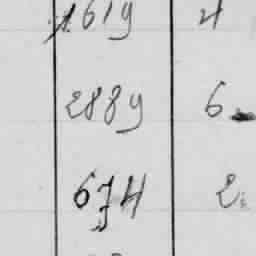 1619 4
2889 6
674 2